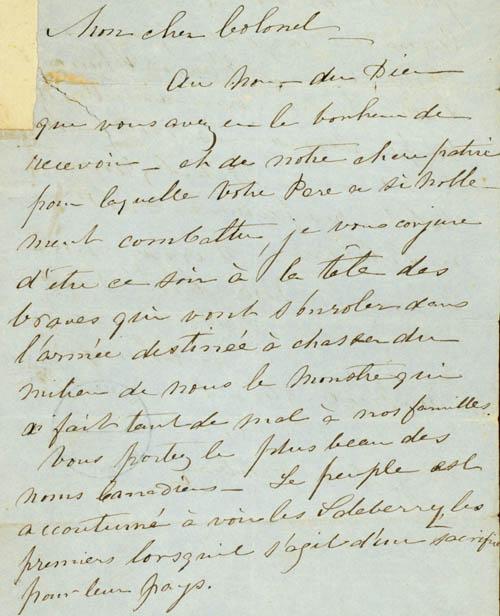 Mon cher Colonel
Au nom du Dieu
que vous avez eu le bonheur de
recevoir – et de notre chere patrie
pour laquelle Votre Pere a si noble-
ment combattu, je vous conjure
d'etre ce soir à la tête des
braves qui vont s'enroler dans
l'armée destinée à chasser du
milieu de nous le monstre qui
a fait tant de mal à nos familles.
Vous portez le plus beau des
noms Canadiens – Le peuple est
accoutumé à voir les Salaberry les
premiers lorsqu'il s'agit d'un sacrifice
pour leur pays.